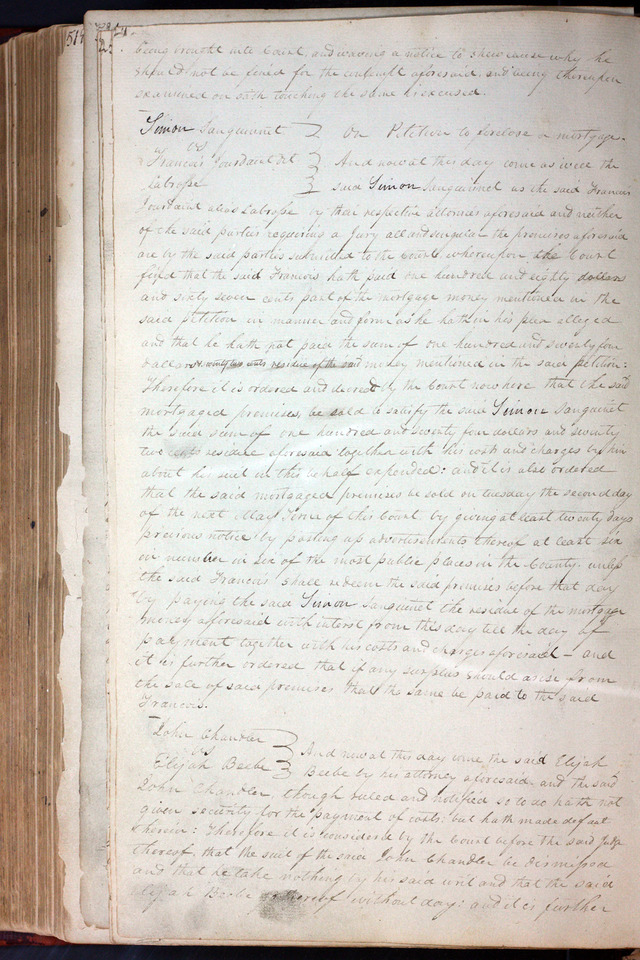 514
being brought into Court, and waving a notice to shew cause why he
should not be fined for the contempt aforesaid, and being thereupon
examined on oath touching the same is excused.
Simon Sanguinet
vs
Francis Jourdain dit
Labrosse
On Petition to foreclose a mortgage.
And now at this day come as well the
said Simon Sanguinet as the said Francis
Jourdain alias Labrosse by their respective attornies aforesaid and neither
of the said parties requiring a Jury all and singular the premises aforesaid
are by the said parties submitted to the Court, whereupon the Court
find that the said Francois hath paid one hundred and eighty dollars
and sixty seven cents part of the mortgage money mentioned in the
said petition in manner and form as he hath in his plea alleged
and that he hath not paid the sum of one hundred and seventy four
dollars & seventy two cents residue of the said money mentioned in the said petition:
Therefore it is ordered and decreed by the Court now here that the said
mortgaged premises, be sold to satisfy the said Simon Sanguinet
the said sum of one hundred and seventy four dollars and seventy
two cents residue aforesaid together with his costs and charges by him
about his suit in this behalf expended: and it is also ordered
that the said mortgaged premises be sold on tuesday the second day
of the next May Term of this Court by giving at least twenty days
previous notice by posting up advertisements thereof at least six
in number in six of the most public places in the County. unless
the said Francois shall redeem the said premises before that day
by paying the said Simon Sanguinet the residue of the mortgage
money aforesaid with interest from this day till the day of
payment together with his costs and charges aforesaid - and
it is further ordered that if any surplus should arise from
the sale of said premises that the same be paid to the said
Francois.
John Chandler
vs
Elijah Beebe
And now at this day came the said Elijah
Beebe by his attorney aforesaid, and the said
John Chandler, though ruled and notified so to do hath not
given security for the payment of costs: but hath made default
therein: Therefore it is considered by the Court before the said Judge
thereof, that the suit of the said John Chandler be dismissed
and that he take nothing by his said writ and that the said
Elijah Beebe go thereof without day: and it is further